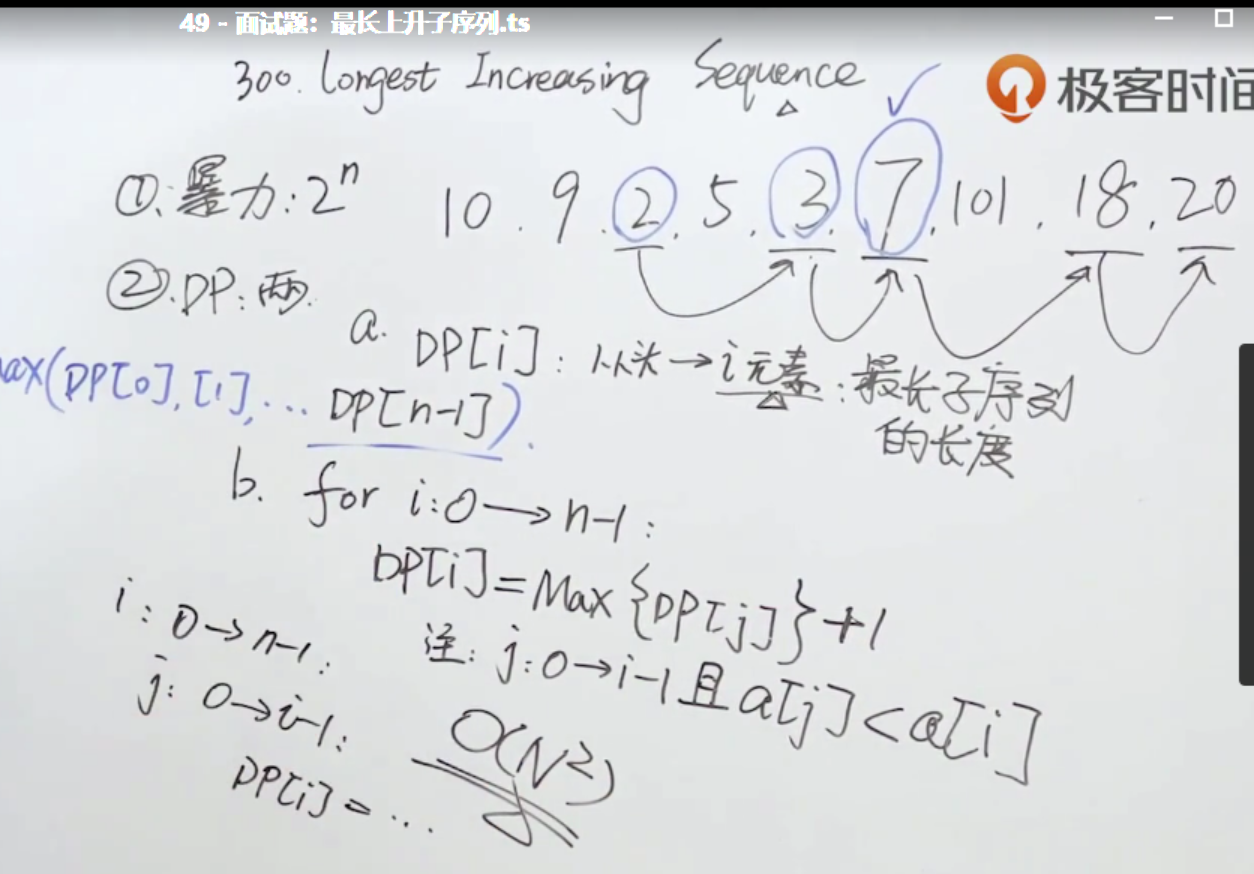 49 - 面试题：最长上升子序列.ts
300. Longest Increasing Sequence
极客时间
①: 暴力: 2^n
10 . 9 . 2 . 5 . 3 . 7 . 101 . 18 . 20
②. DP: 两.
a. DP[i] : 从头→i元素 : 最长子序列
的长度
max(DP[0], [1], ... DP[n-1]).
b. for i:0→n-1:
DP[i]=Max{DP[j]}+1
注: j:0→i-1且a[j]<a[i]
i: 0→n-1:
j: 0→i-1:
DP[i] = ...
O(N²)